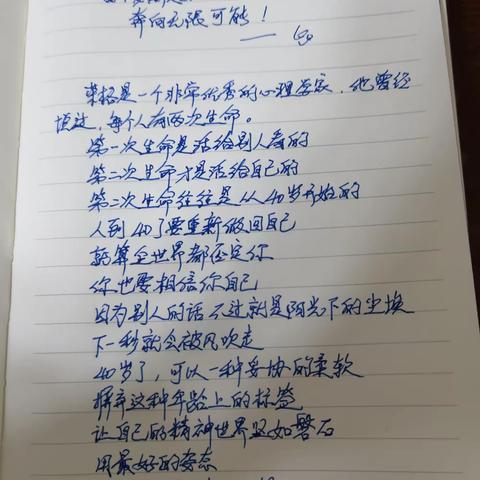 奔向无限可能！
荣格是一个非常优秀的心理学家，他曾经
说过，每个人有两次生命。
第一次生命是活给别人看的
第二次生命才是活给自己的
第二次生命往往是从40岁开始的
人到40了要重新做回自己
就算全世界都否定你
你也要相信你自己
因为别人的话不过就是阳光下的尘埃
下一秒就会被风吹走
40岁了，可以一种妥协的柔软
摒弃这种年龄上的标签
让自己的精神世界坚如磐石
用最好的姿态